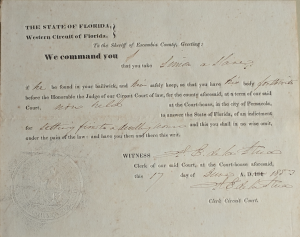 THE STATE OF FLORIDA,
Western Circuit of Florida;
To the Sheriff of Escambia County, Greeting:
We command you
that you take Simon a Slave
if he be found in your bailiwick, and him safely keep, so that you have his body forthwith
before the Honorable the Judge of our Circuit Court of law, for the county aforesaid, at a term of our said
Court, now held at the Court-house, in the city of Pensacola,
to answer the State of Florida, of an indictment
for setting fire to a dwelling house and this you shall in no wise omit,
under the pain of the law—and have you then and there this writ.
WITNESS
Clerk of our said Court, at the Court-house aforesaid,
this 17 day of A. D. 1853
Clerk Circuit Court.